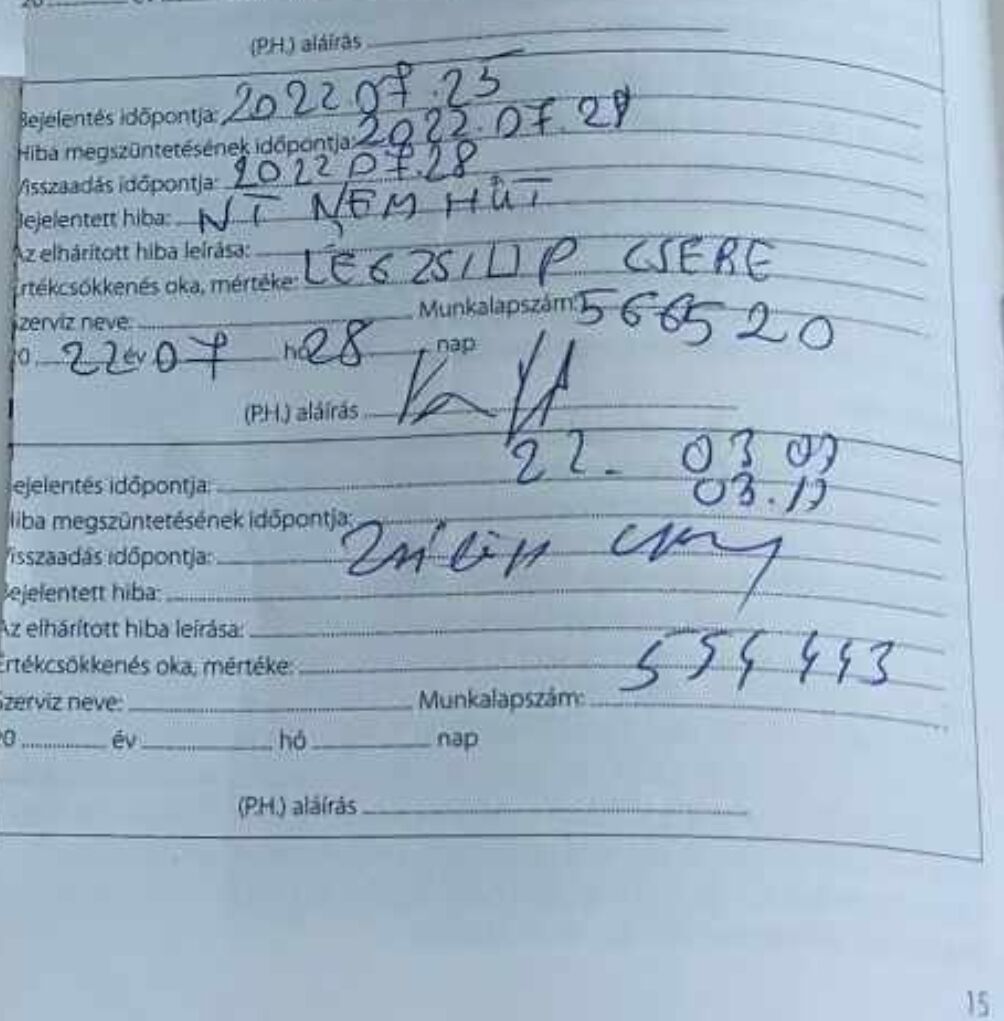 (P.H.) aláírás
Bejelentés időpontja: 2022.07.25
Hiba megszüntetésének időpontja: 2022.07.28
Visszaadás időpontja: 2022 07.28
Bejelentett hiba: NT NEM HŰT
Az elhárított hiba leírása:
Értékcsökkenés oka, mértéke: LÉGZSILIP CSERE
Szerviz neve: Munkalapszám: 566520
20 22 év 07 hó 28 nap
(P.H.) aláírás
22. 03 09
Bejelentés időpontja: 03.
Hiba megszüntetésének időpontja:
Visszaadás időpontja:
Bejelentett hiba:
Az elhárított hiba leírása:
Értékcsökkenés oka, mértéke: 554443
Szerviz neve: Munkalapszám:
20 év hó nap
(P.H.) aláírás
15